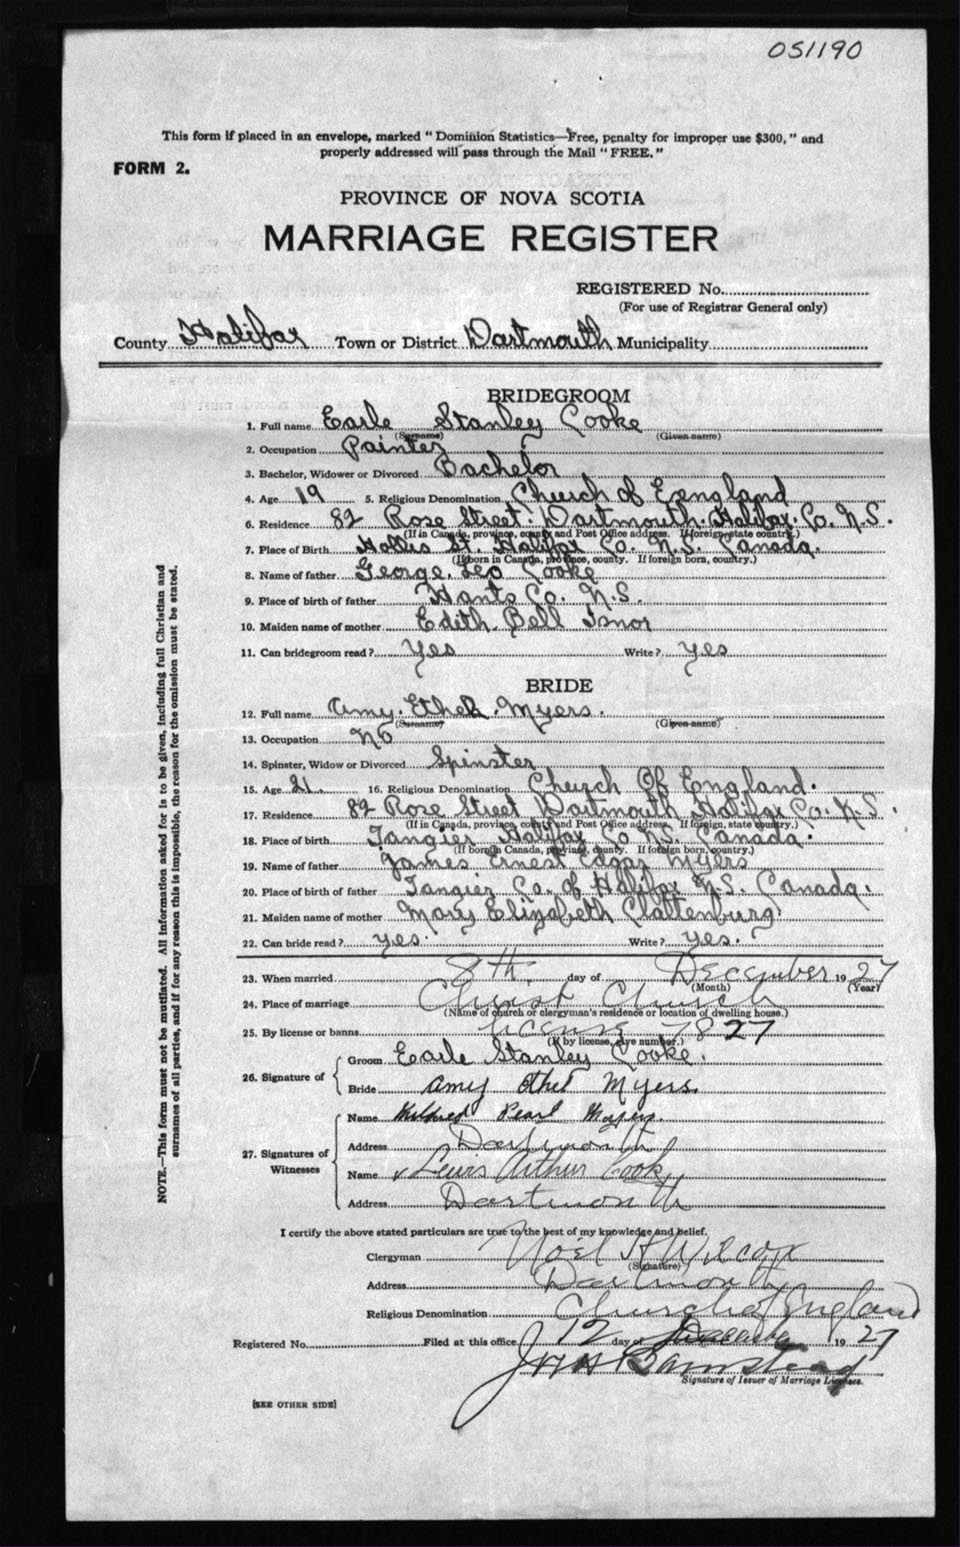 051190
This form if placed in an envelope, marked " Dominion Statistics—Free, penalty for improper use $300, " and
properly addressed will pass through the Mail " FREE. "
FORM 2.
PROVINCE OF NOVA SCOTIA
MARRIAGE REGISTER
REGISTERED No.
(For use of Registrar General only)
County Halifax Town or District Dartmouth Municipality
BRIDEGROOM
1. Full name Earle Stanley Cooke
(Surname) (Given name)
2. Occupation Painter
3. Bachelor, Widower or Divorced Bachelor
4. Age 19 5. Religious Denomination Church of England
6. Residence 82 Rose Street. Dartmouth. Halifax. Co. N.S.
(If in Canada, province, county and Post Office address. If foreign, state country.)
7. Place of Birth Hollis St. Halifax Co. N.S. Canada.
(If born in Canada, province, county. If foreign born, country.)
8. Name of father George. Leo Cooke
9. Place of birth of father Hants Co. N.S.
10. Maiden name of mother Edith Bell Isnor
11. Can bridegroom read? Yes Write? yes
BRIDE
12. Full name Amy. Ethel. Myers.
(Surname) (Given name)
13. Occupation No
14. Spinster, Widow or Divorced Spinster
15. Age 21. 16. Religious Denomination Church Of England.
17. Residence 82 Rose Street Dartmouth Halifax Co. N.S.
(If in Canada, province, county and Post Office address. If foreign, state country.)
18. Place of birth Tangier Halifax Co N.S. Canada.
(If born in Canada, province, county. If foreign born, country.)
19. Name of father James Ernest Edgar Myers
20. Place of birth of father Tangier Co. of Halifax N.S. Canada.
21. Maiden name of mother Mary Elizabeth Clattenburg.
22. Can bride read? yes. Write? yes.
23. When married 8th day of December 1927
(Month) (Year)
24. Place of marriage Christ Church
(Name of church or clergyman's residence or location of dwelling house.)
25. By license or banns license 7827
(If by license, give number.)
26. Signature of
Groom Earle Stanley Cooke.
Bride Amy Ethel Myers.
27. Signatures of Witnesses
Name Mildred Pearl Myers.
Address Dartmouth
Name Lewis Arthur Cook
Address Dartmouth
I certify the above stated particulars are true to the best of my knowledge and belief.
Clergyman Noel H Wilcox
(Signature)
Address Dartmouth
Religious Denomination Church of England
Registered No. Filed at this office 12 day of December 1927
Signature of Issuer of Marriage Licenses.
[SEE OTHER SIDE]
NOTE.—This form must not be mutilated. All information asked for is to be given, including full Christian and
surnames of all parties, and if for any reason this is impossible, the reason for the omission must be stated.